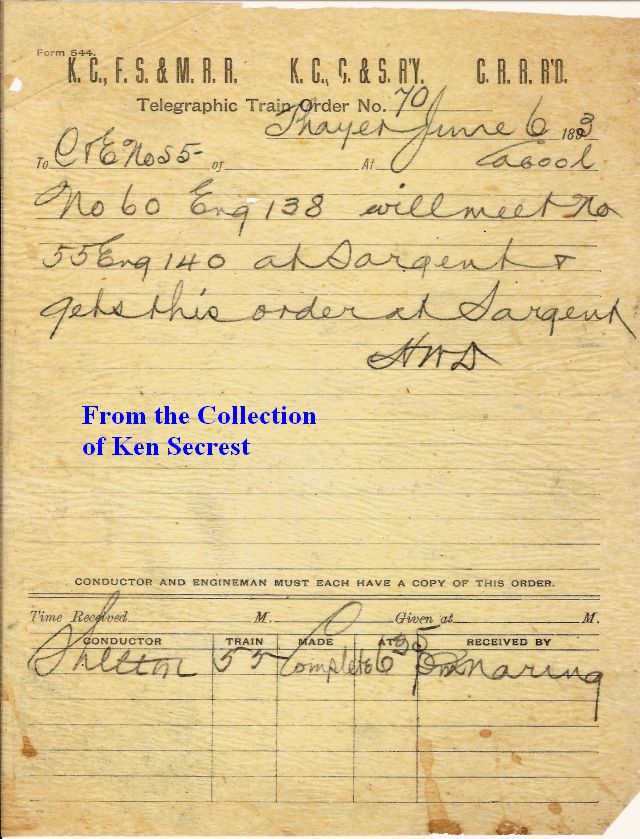 Form 544.
K. C., F. S. & M. R. R. K. C., C. & S. R'Y. C. R. R. R'D.
Telegraphic Train Order No. 70
Thayer June 6 1893
To C & E No 55 of At Cabool
No 60 Eng 138 will meet No
55 Eng 140 at Sargent &
gets this order at Sargent
HWD
From the Collection
of Ken Secrest
CONDUCTOR AND ENGINEMAN MUST EACH HAVE A COPY OF THIS ORDER.
Time Received M. Given at M.
CONDUCTOR TRAIN MADE AT RECEIVED BY
Shelton 55 Complete 635 Naring